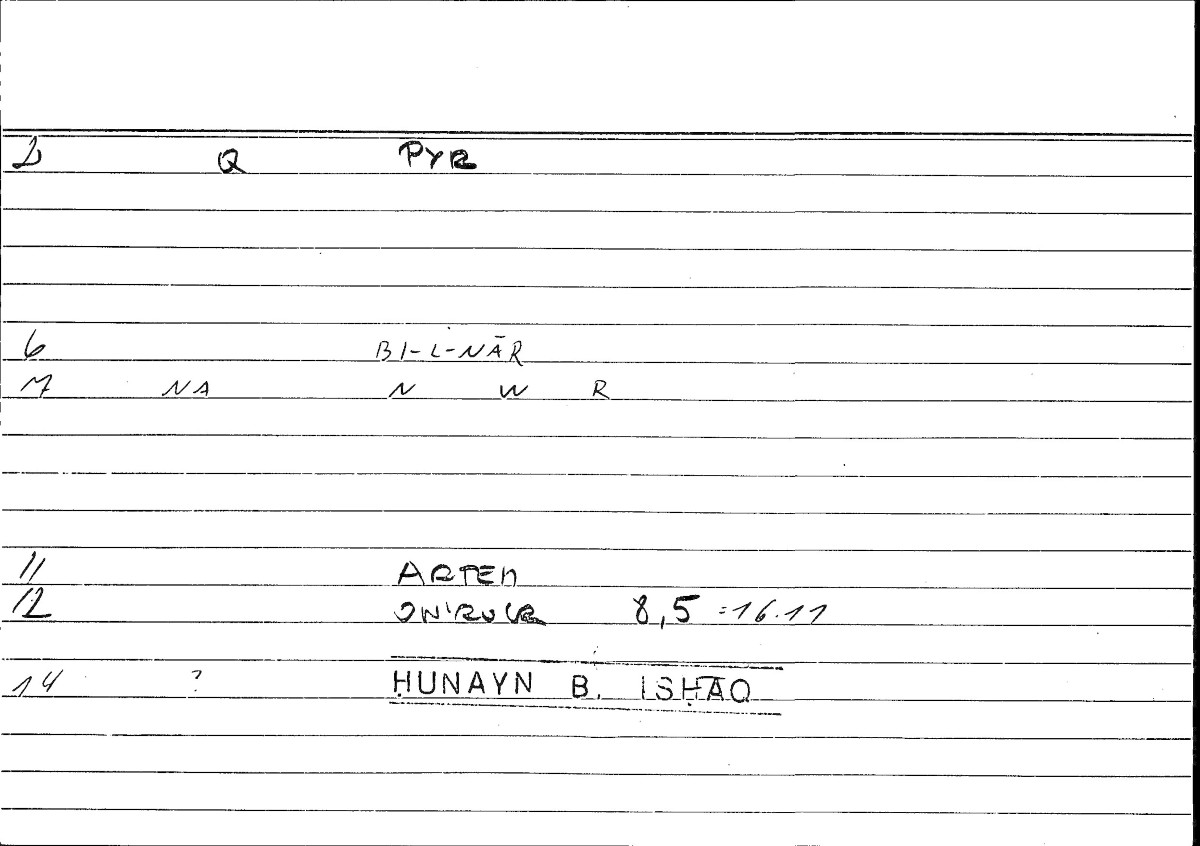 2 Q PYR
6 BI-L-NĀR
7 NA N W R
11 ARTEM
12 ON'RUCR 8,5 =16.11
14 ? ḤUNAYN B. ISḤĀQ